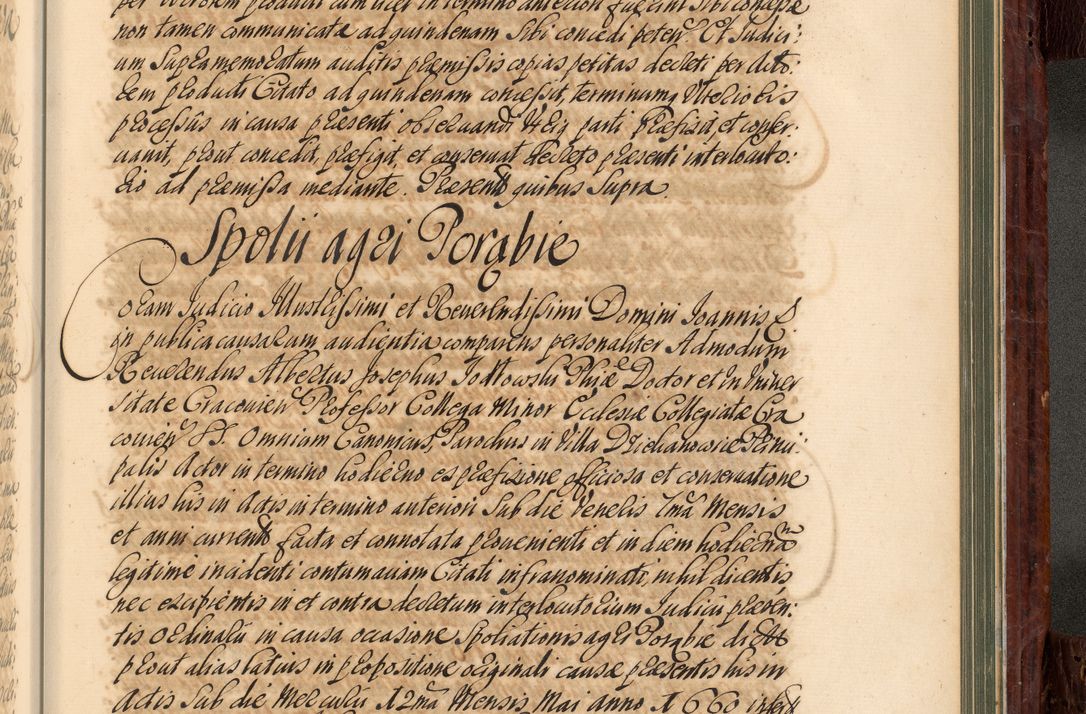 per Actorem producti cum licet in termino anteriori fuerint sibi concessæ
non tamen communicatæ ad quindenam sibi concedi peteń. Et Judici:
um Supramemoratum auditis præmissis copias petitas decreti per Acto:
rem producti Citato ad quindenam concessit, terminumq
processus in causa præsenti observandi parti præfixit, et conser:
vavit, prout concedit, præfigit, et conservat decreto præsenti interlocuto:
rio ad præmissa mediante. Præsentib quibus Supra.
Spolii agri Porąbie
Coram Judicio Illustrissimi et Reverendissimi Domini Joannis E.
in publica causarum audientia comparens personaliter Admodum
Reverendus Albertus Josephus Jodłowski Phiæ Doctor et in Univer
sitate Cracovień Professor Collega Minor Ecclesiæ Collegiatæ Cra
covień SS. Omnium Canonicus, Parochus in Villa Dziekanowice Princi:
palis Actor in termino hodierno ex præfixione officiosa et conservatione
illius his in Actis in termino anteriori Sub die Veneris 7mâ Mensis
et anni currentis facta et connotata provenienti et in diem hodiernam
legitime incidenti contumaciam Citati infranominati, nihil dicentis
nec excipientis in et contra decretum interlocutorium Judicii præsen:
tis Ordinarii in causa occasione Spoliationis agri Porąbie dicti
prout alias latius in propositione originali causæ præsentis his in
Actis Sub die Mercurii 12mâ Mensis Mai anno 1660